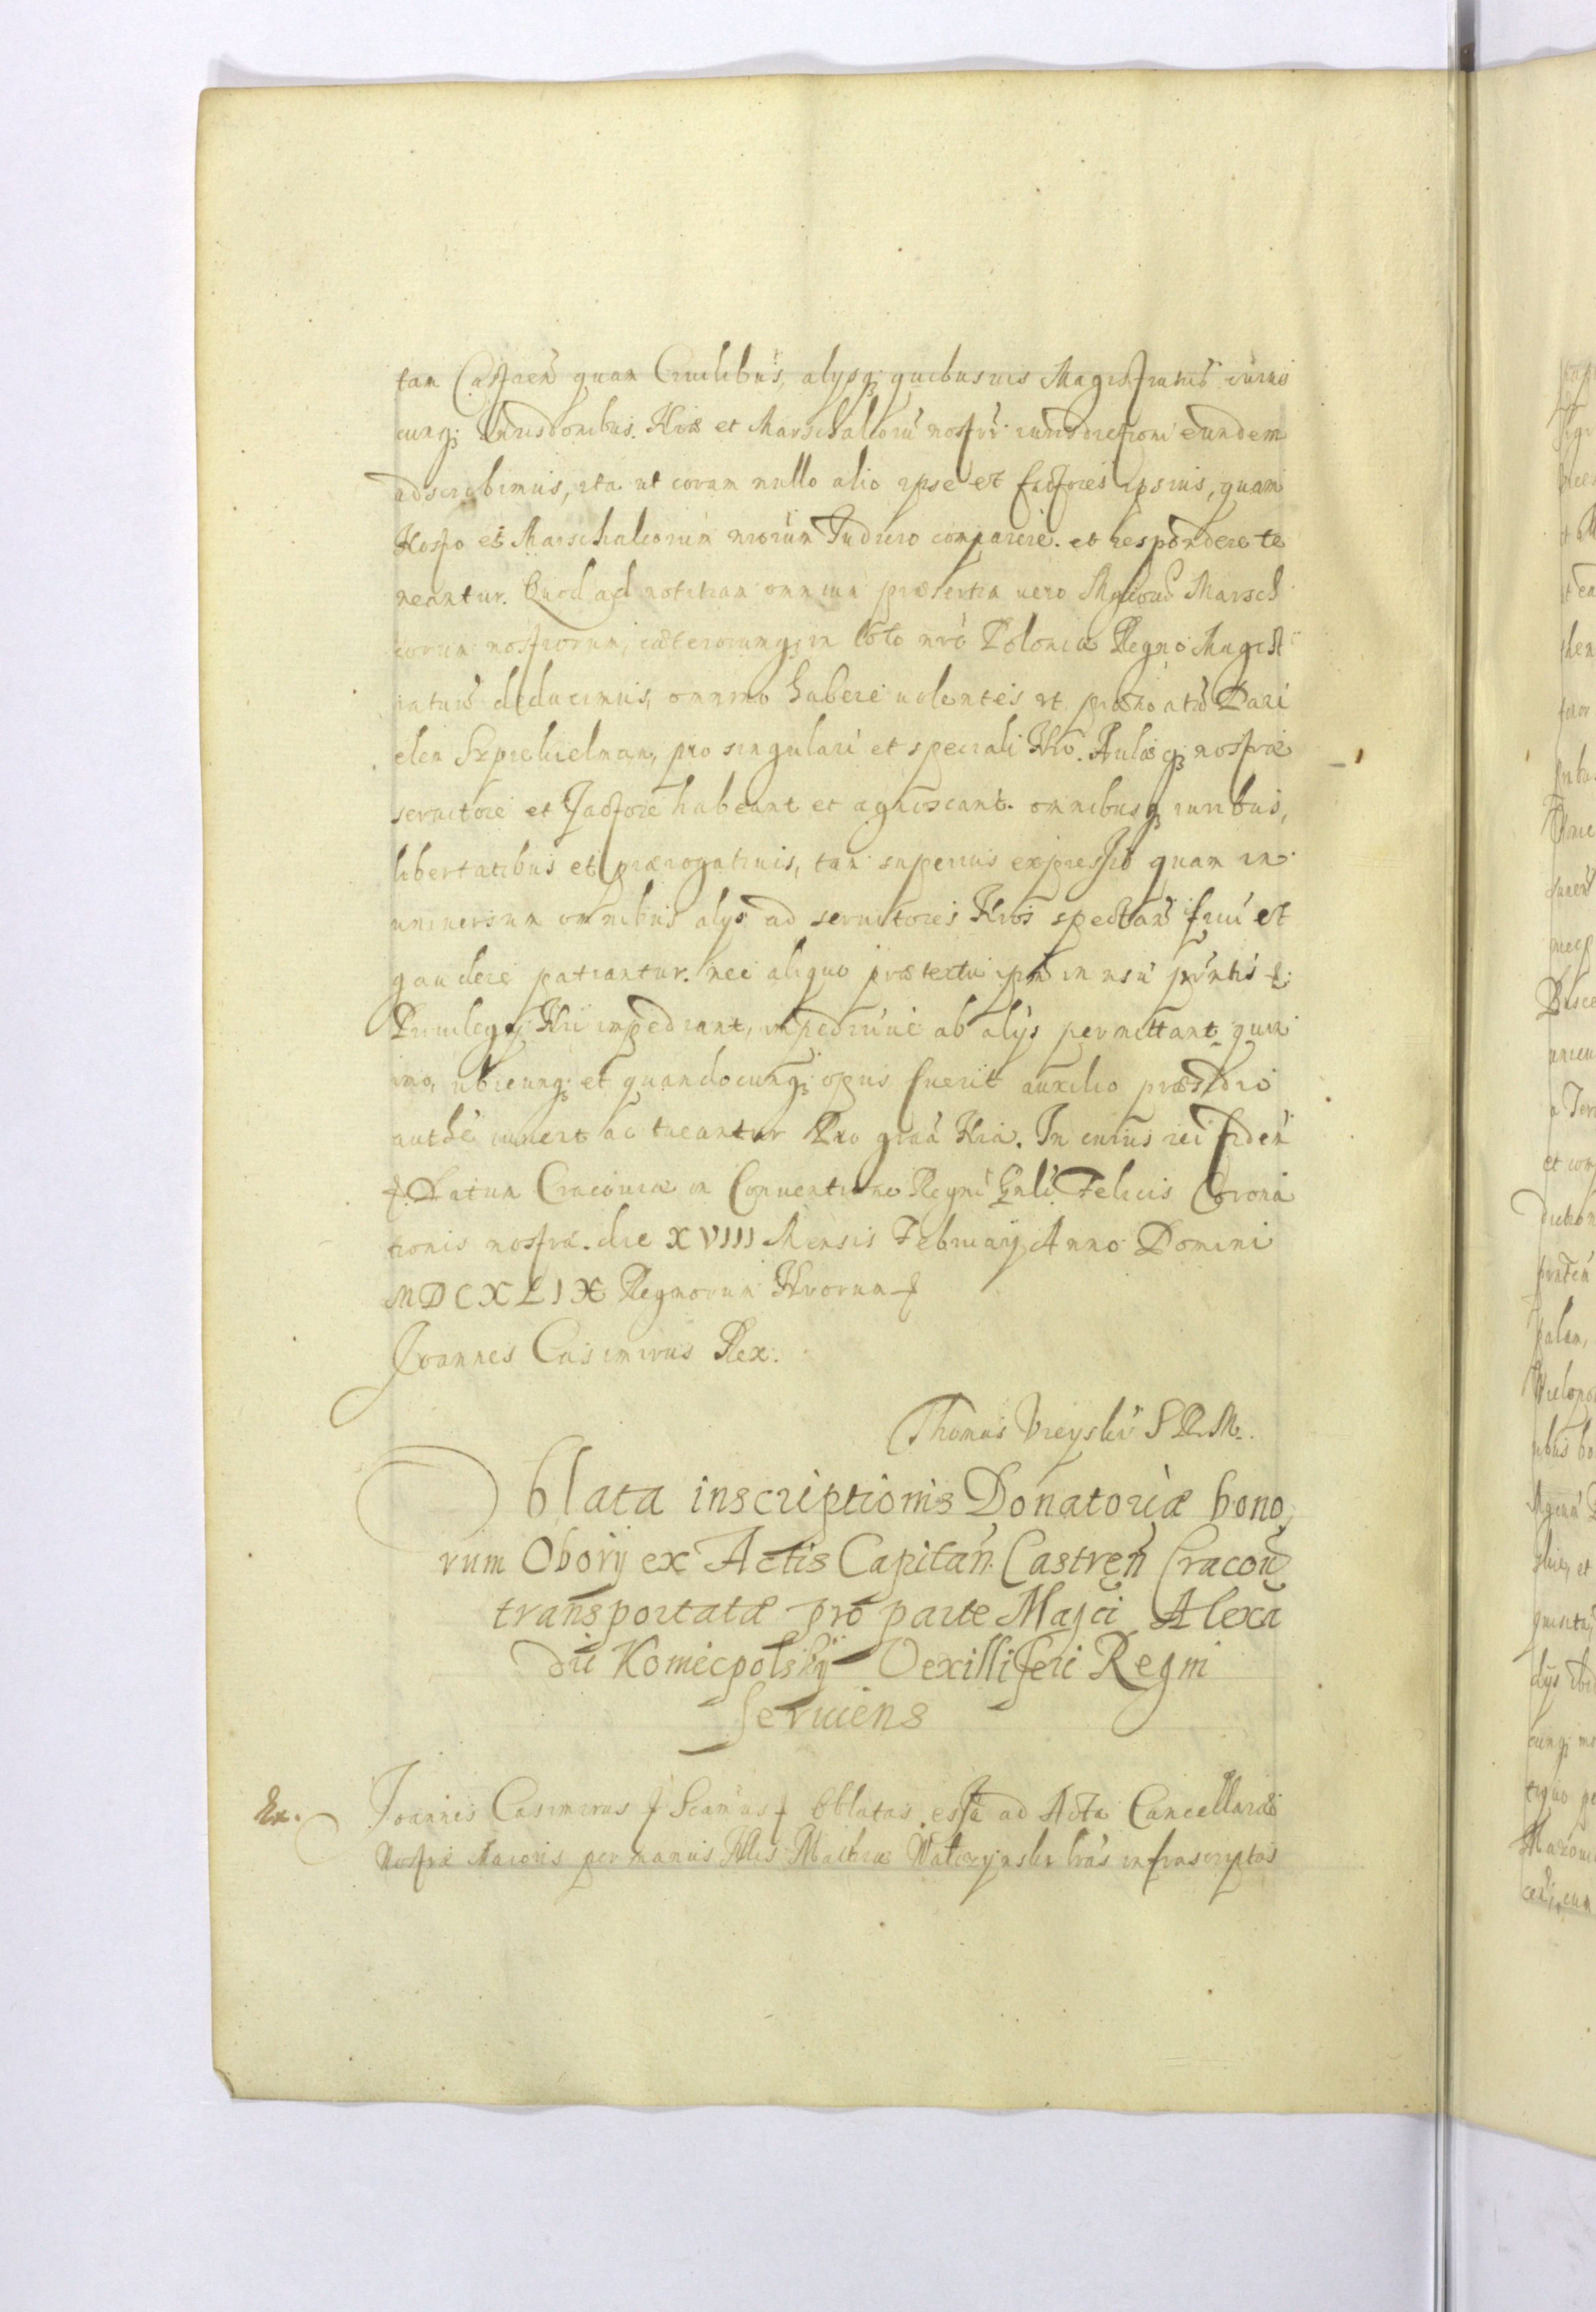 tam Castren̄ quam Ciuilibus, alysq; quibusuis Magistratib cuius
cunq; Iurisdonibus. Nrae et Marschalcorū nostrr iurisdictioni eundem
adscribimus, ita ut coram nullo alio ipse et factores ipsius, quam
Nostro et Marschalcorum nrorum Iudicio comparere et respondere te
neantur. Quod ad notitiam omnium praesertim uero Mgficorū Marschal
corum nostrorum, caeterorumq; in toto nro Poloniae Regno Magist
ratuū deducimus, omnino habere uolentes ut praenoatū Dani
elem pro singulari et speciali Nro. Aulaeq; nostrae
seruitore et factore habeant et agnoscant. omnibusq; iuribus,
libertatibus et praerogatiuis, tam superius expressis quam in
uniuersum omnibus alys ad seruitores Nros spectan̄ frui et
gaudere patiantur. nec aliquo praetextu ipm in usu pntis
Priuilegy Nri impediant, impediriue ab alijs permittant quin
imo, ubicunq; et quandocunq; opus fuerit auxilio praesidio
authe iuuent ac tueantur Pro graā Nra. In cuius rei fidem
Datum Cracouiae in Conuentione Regni Gnli Felicis Corona
tionis nostrae. die XVIII Mensis February Anno Domini
MDCXLIX Regnorum Nrorum
Ioannes Casimirus Rex.
Thomas Vieyski S R M.
Oblata inscriptionis Donatoriae bono
rum Obory ex Actis Capitan̄. Castren̄ Cracou
transportatae pro parte Magci Alexa
dri Koniecpolskij Vexilliferi Regni
seruiens
Ex.
Ioannes Casimirus Oblatas esse ad Acta Cancellariae
Nostrae Maioris per manus Nlis lras infrascriptas